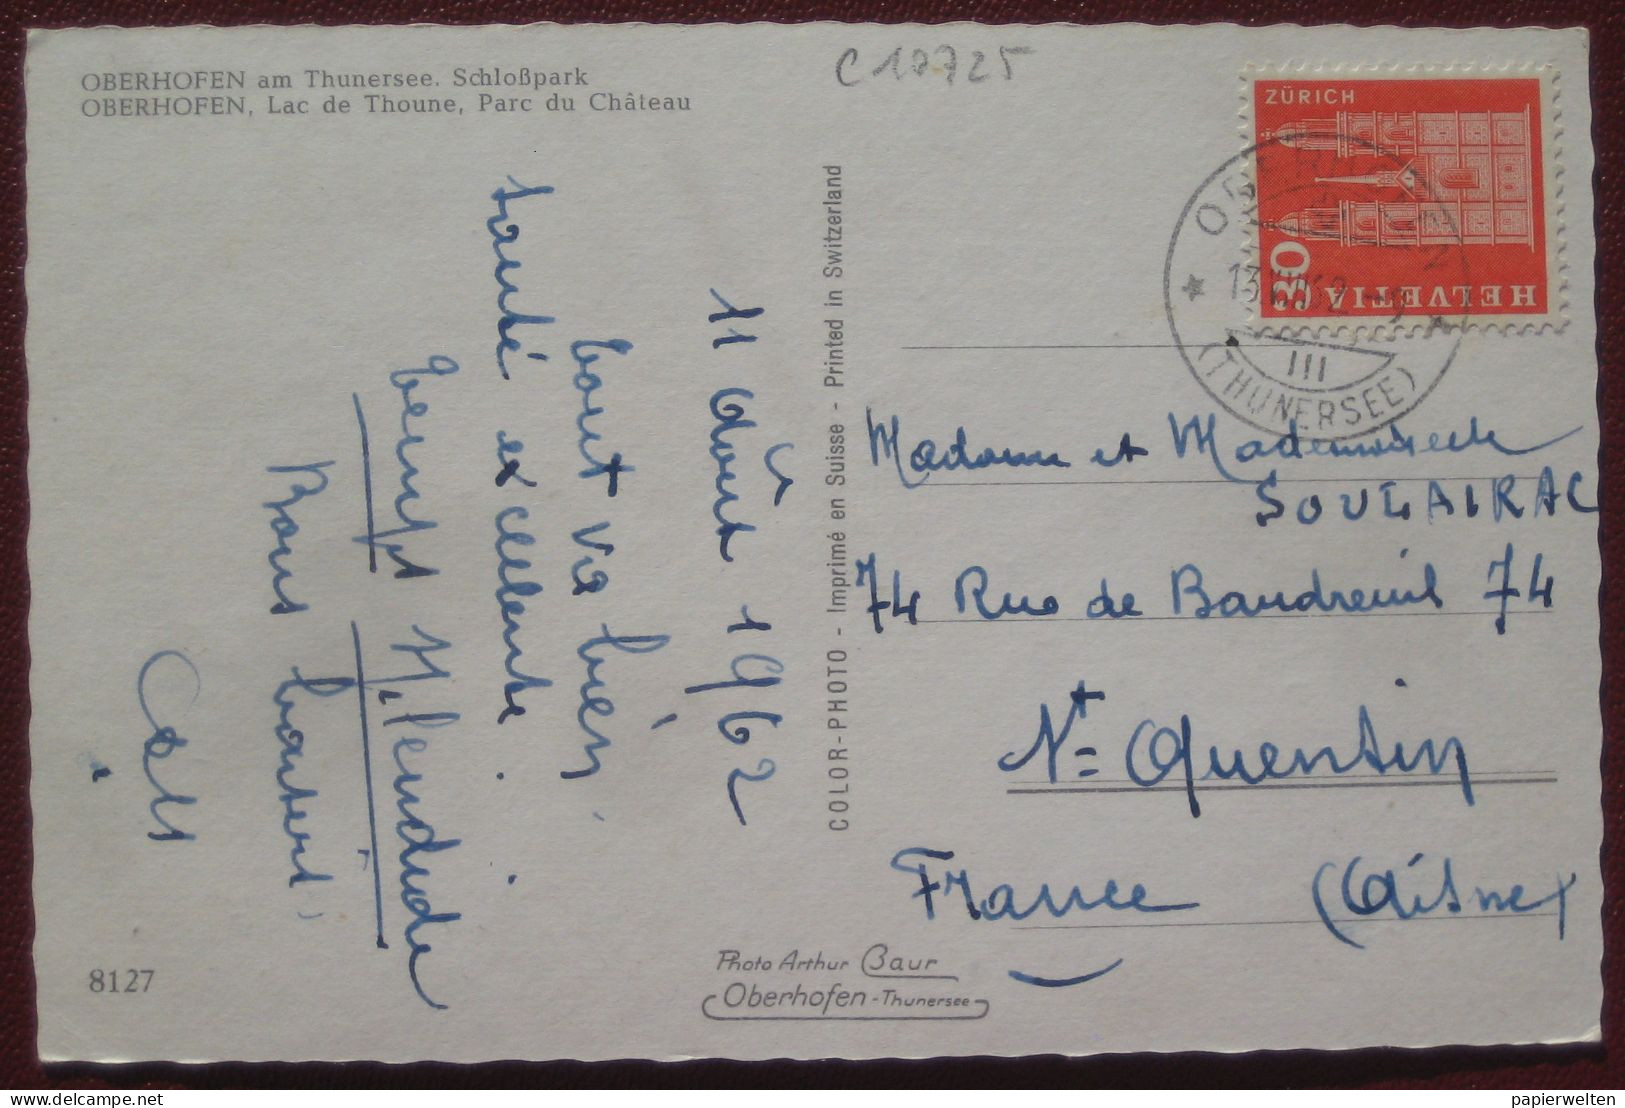 OBERHOFEN am Thunersee. Schloßpark
OBERHOFEN, Lac de Thoune, Parc du Château
C10725
11 Août 1962
tout va bien,
santé excellente.
temps splendide
Bons baisers
8127
COLOR-PHOTO - Imprimé en Suisse - Printed in Switzerland
Photo Arthur Baur
Oberhofen-Thunersee
ZÜRICH
30
HELVETIA
OBERHOFEN
13.VIII.62-9
III
(THUNERSEE)
Madame et Mademoiselle
SOULAIRAC
74 Rue de Baudreuil 74
St Quentin
France (Aisne)
papierwelten